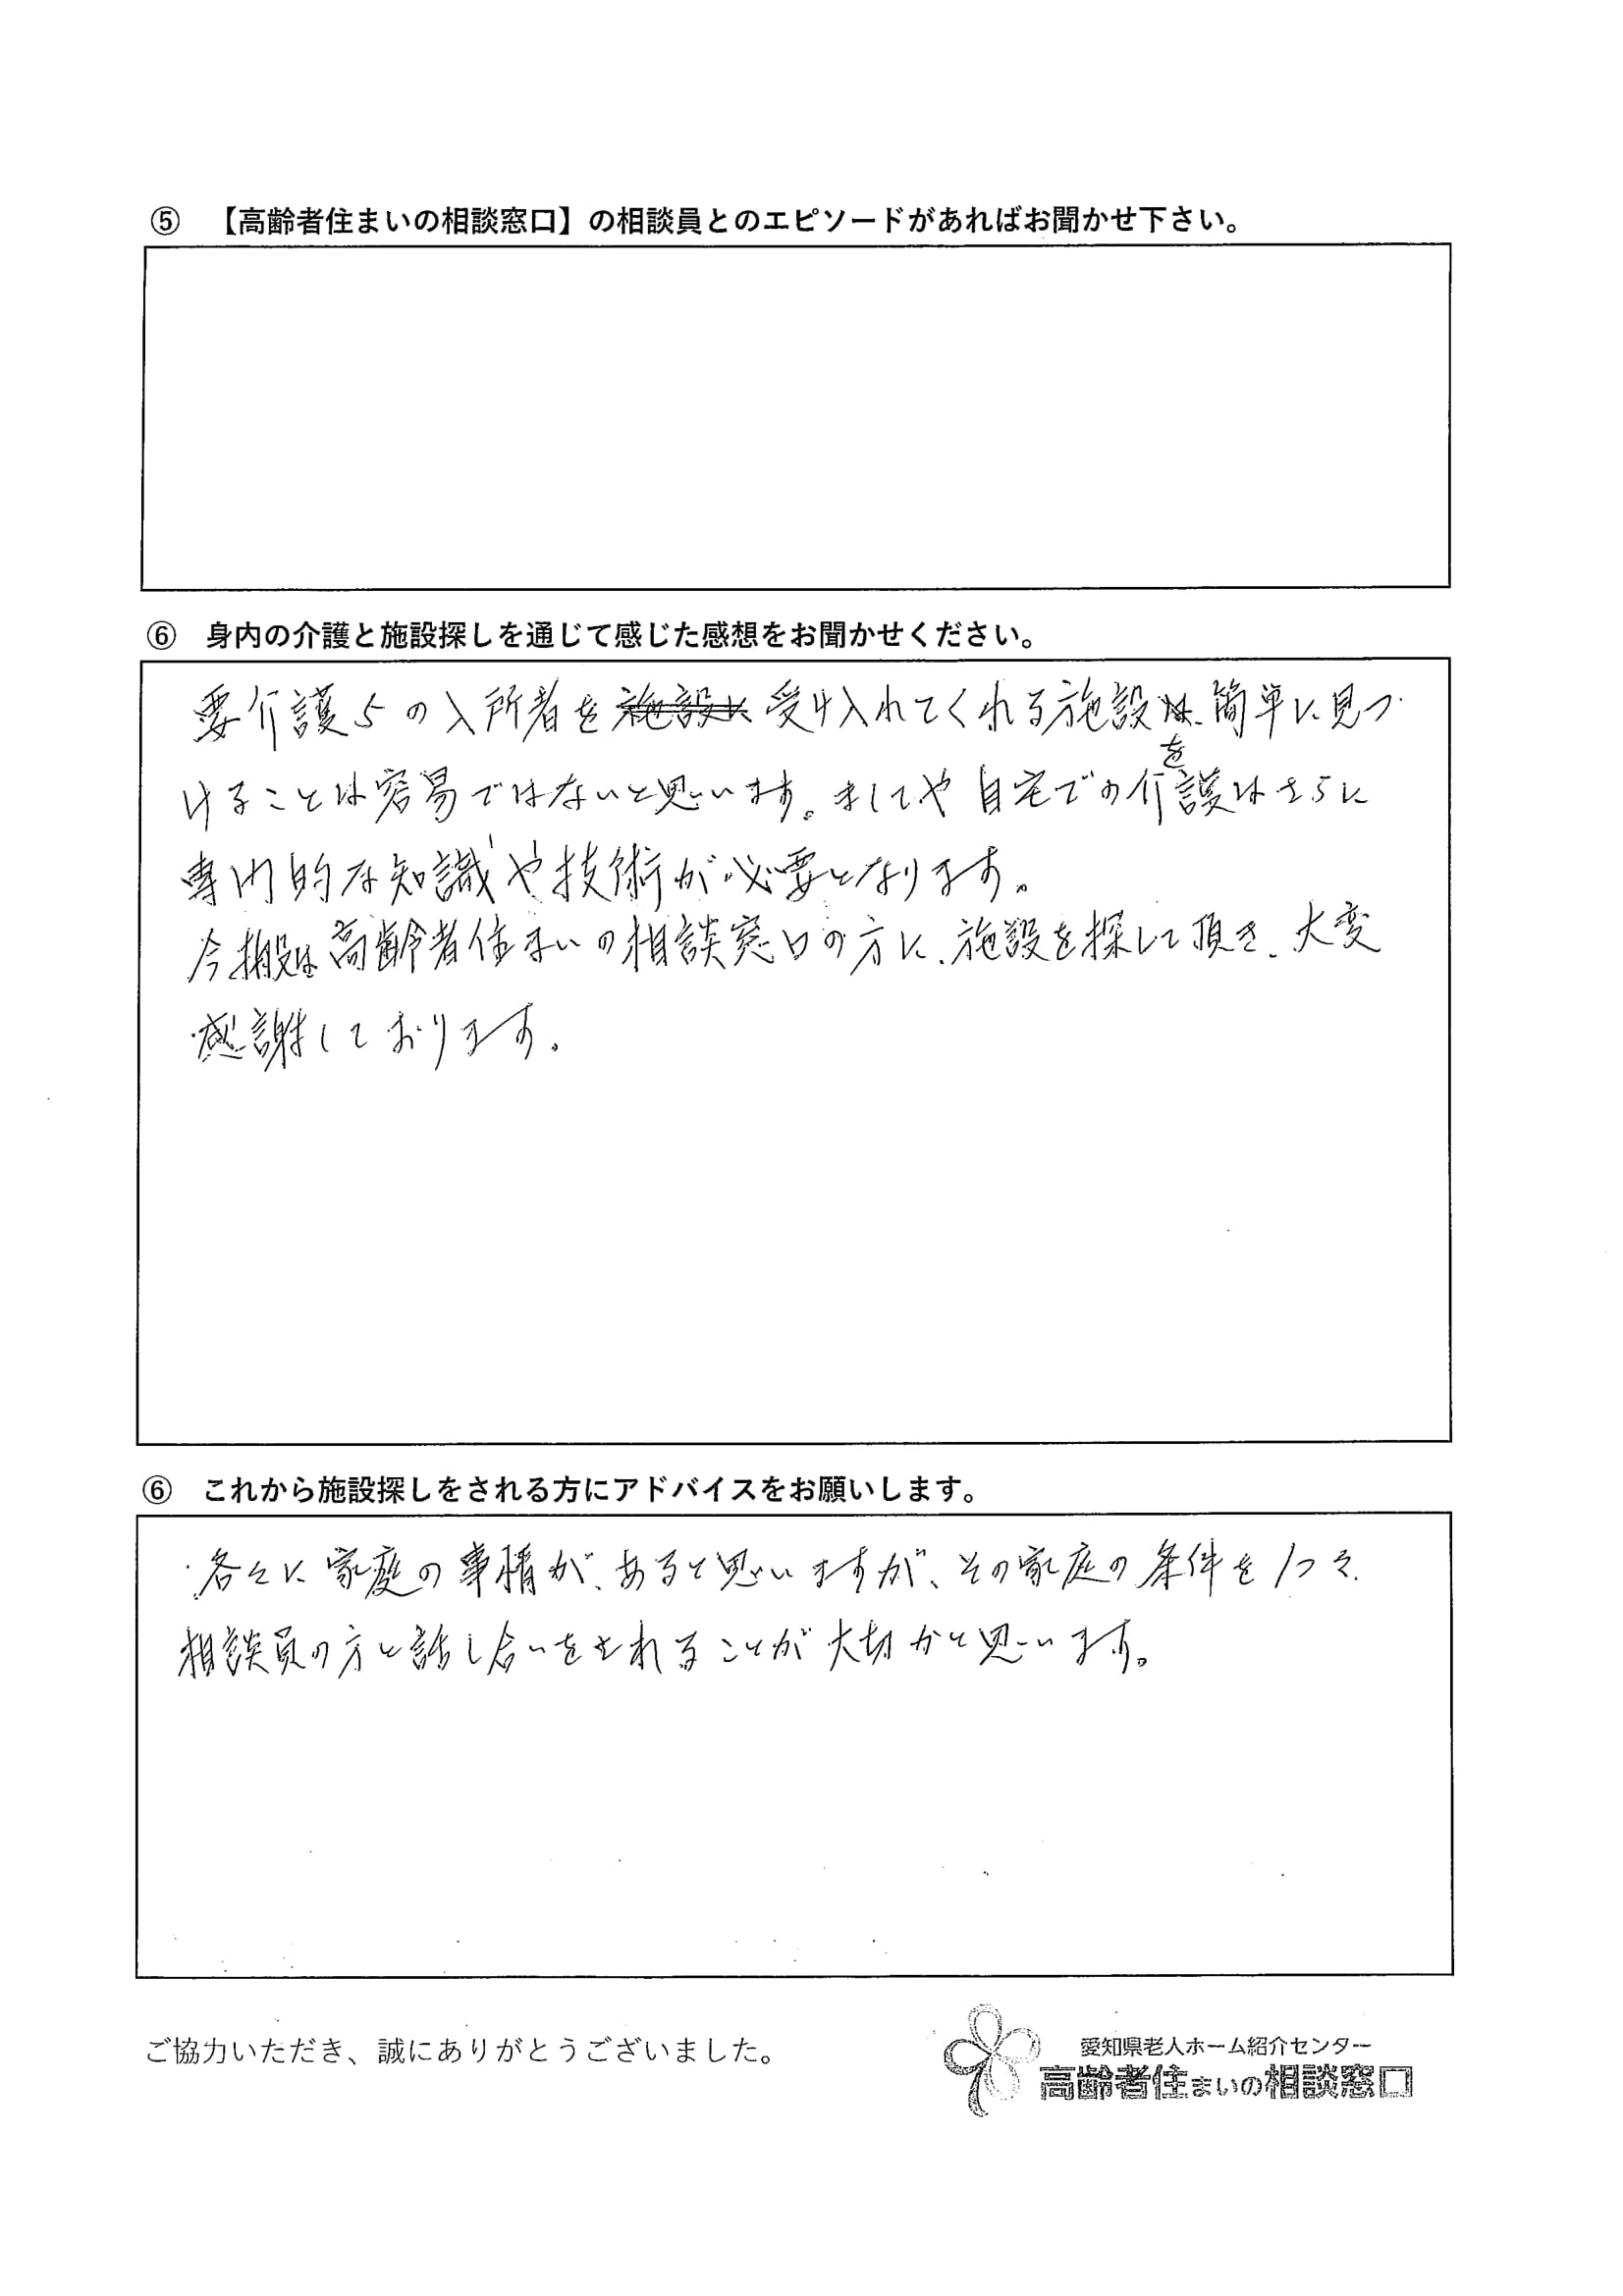 ⑤ 【高齢者住まいの相談窓口】の相談員とのエピソードがあればお聞かせ下さい。
⑥ 身内の介護と施設探しを通じて感じた感想をお聞かせください。
要介護5の入所者を施設に受け入れてくれる施設を簡単に見つ
けることは容易ではないと思います。ましてや自宅での介護はさらに
専門的な知識や技術が必要となります。
今般は高齢者住まいの相談窓口の方に、施設を探して頂き、大変
感謝しております。
⑥ これから施設探しをされる方にアドバイスをお願いします。
各々に家庭の事情が、あると思いますが、その家庭の条件を
相談員の方と話し合いをされることが大切かと思います。
ご協力いただき、誠にありがとうございました。
愛知県老人ホーム紹介センター
高齢者住まいの相談窓口